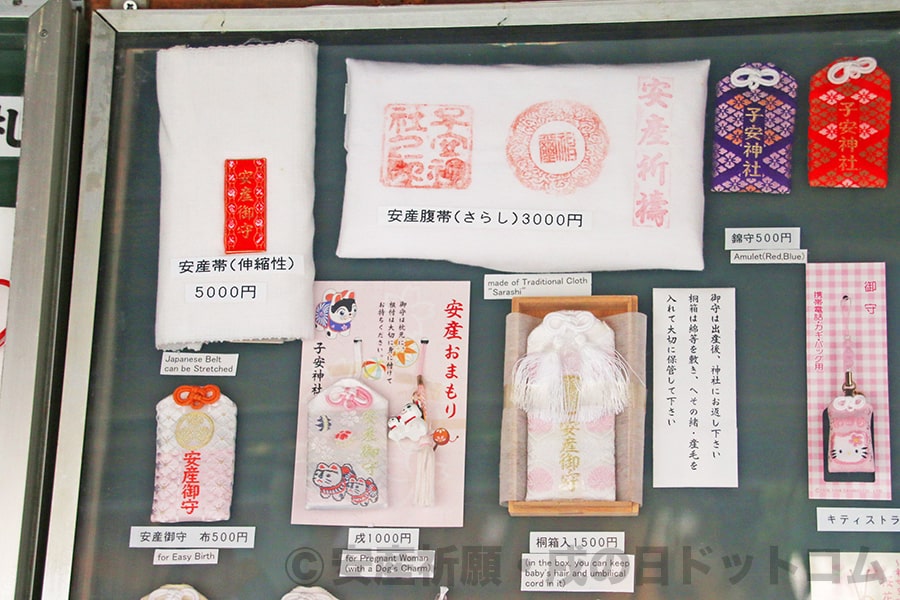 安産御守
安産帯(伸縮性)
5000円
Japanese Belt
can be Stretched
子安神
社之印
安産祈祷
安産腹帯(さらし)3000円
made of Traditional Cloth
"Sarashi"
子安神社
子安神社
錦守500円
Amulet(Red,Blue)
安産御守
安産御守 布500円
for Easy Birth
安産おまもり
御守は枕元に、
根付は大切に身に付けて
お持ちください。
子安神社
安産御守
戌1000円
for Pregnant Woman
(with a Dog's Charm)
安産御守
桐箱入1500円
(in the box, you can keep
baby's hair and umbilical
cord in it)
御守は出産後、神社にお返し下さい
桐箱は綿等を敷き、へその緒・産毛を
入れて大切に保管して下さい
御守
携帯電話・カギ・バッグ用
キティストラ
©安産祈願・戌の日ドットコム